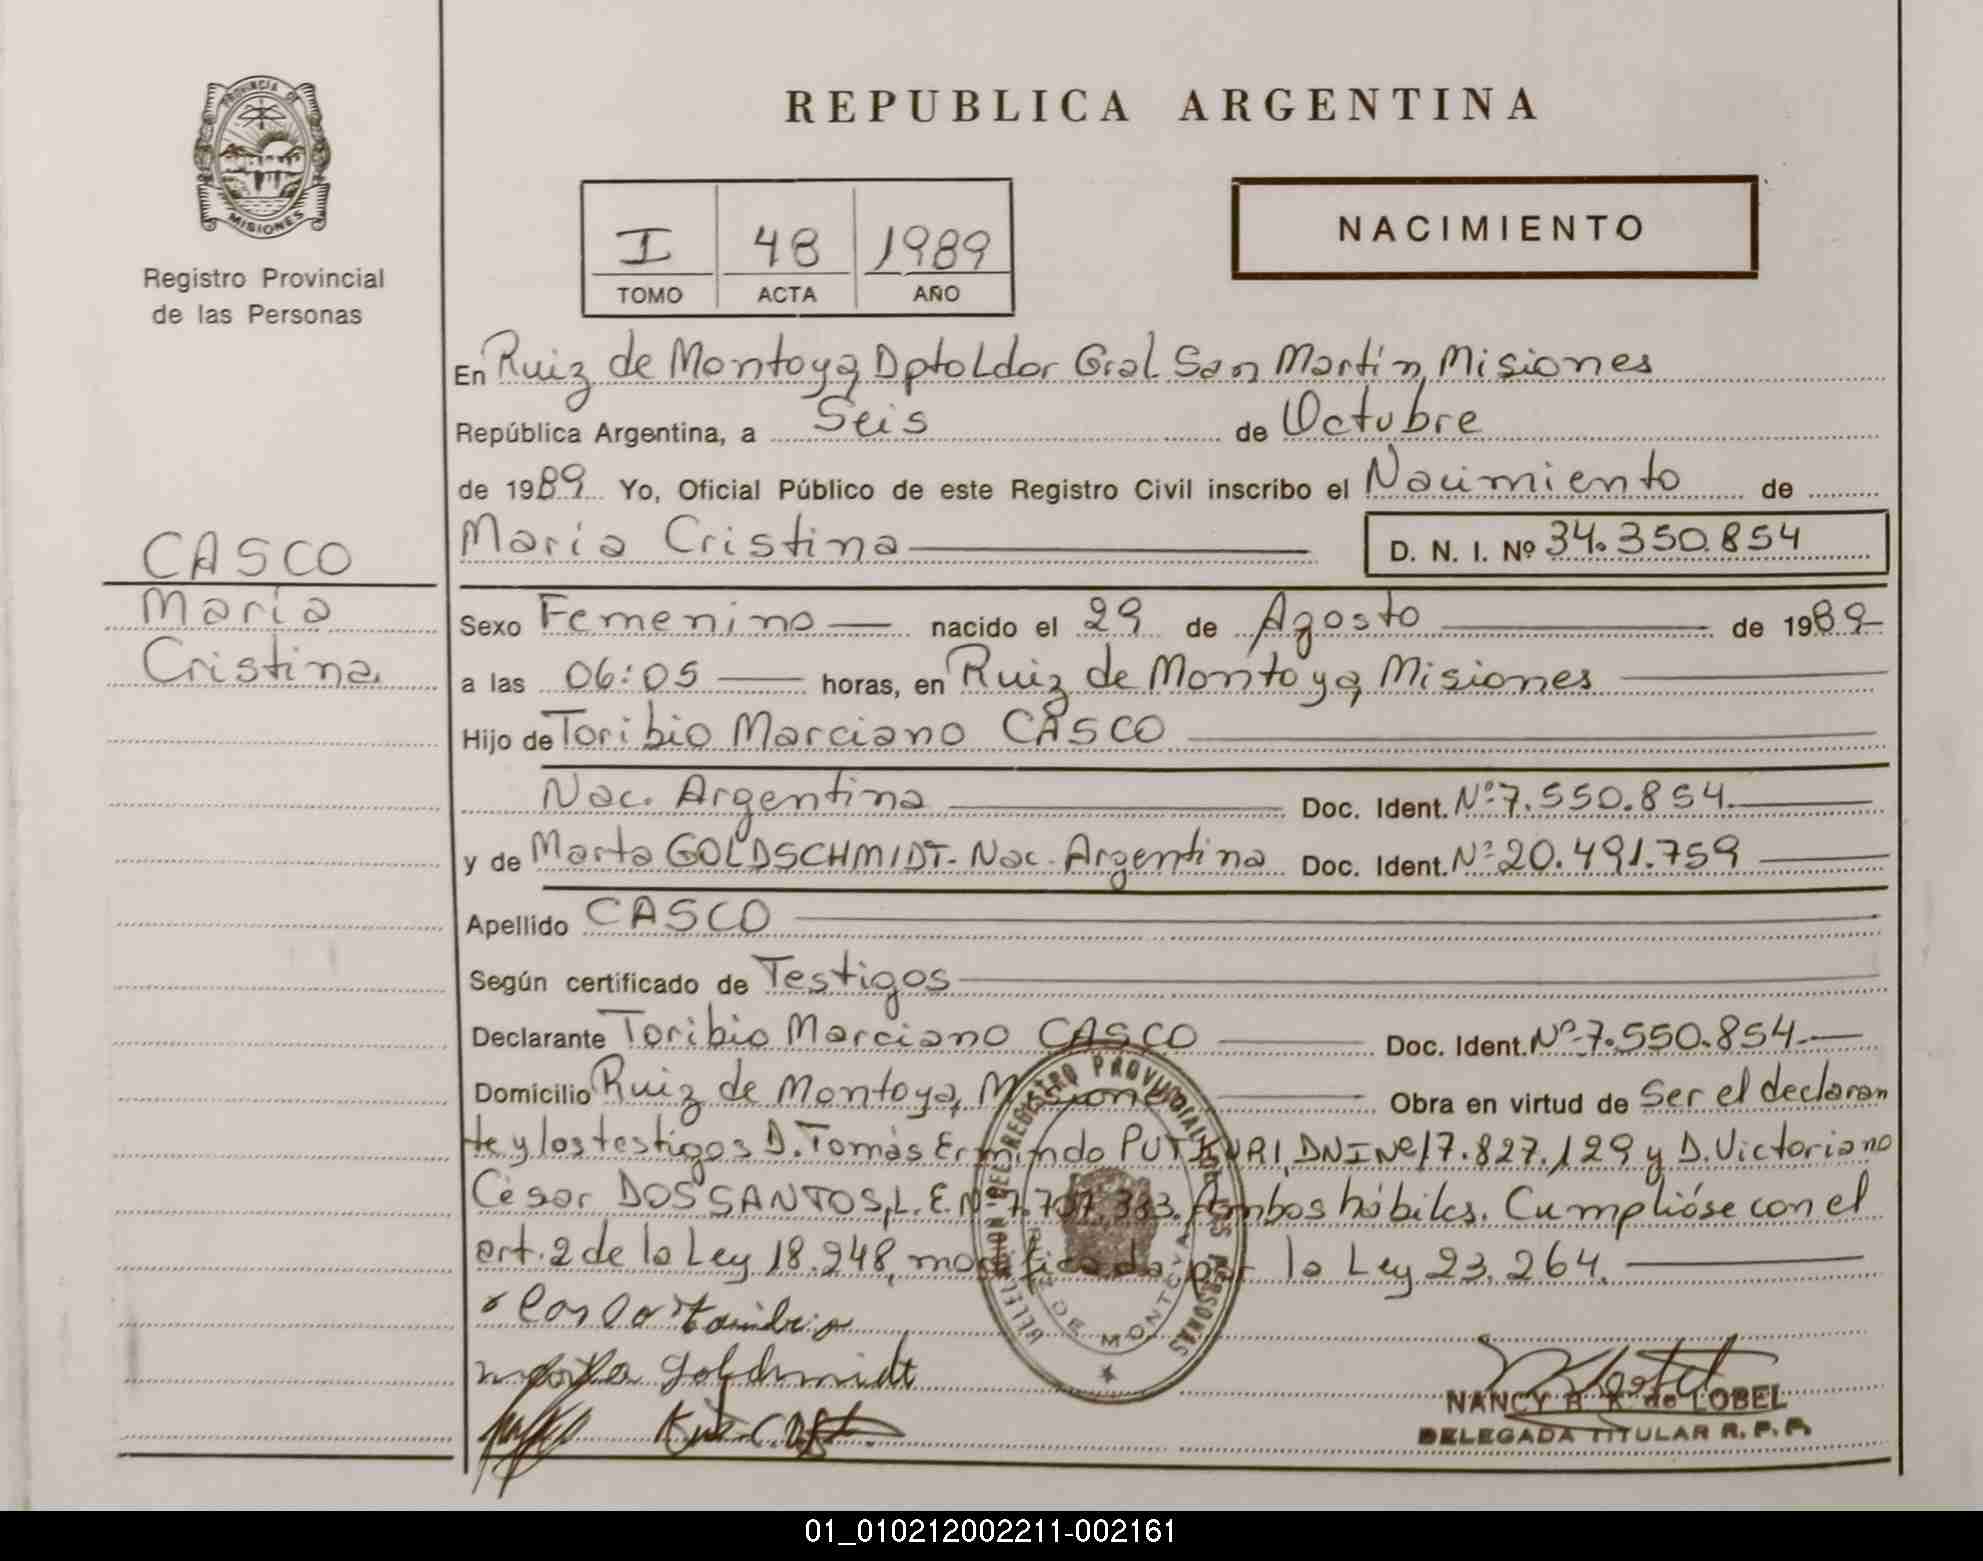 PROVINCIA DE
MISIONES
Registro Provincial
de las Personas
REPUBLICA ARGENTINA
I 48 1989
TOMO ACTA AÑO
NACIMIENTO
En Ruiz de Montoya, Dpto Ldor Gral San Martín, Misiones
República Argentina, a Seis de Octubre
de 1989 Yo, Oficial Público de este Registro Civil inscribo el Nacimiento de
María Cristina D. N. I. Nº 34.350.854
CASCO
María
Cristina
Sexo Femenino nacido el 29 de Agosto de 1989
a las 06:05 horas, en Ruiz de Montoya, Misiones
Hijo de Toribio Marciano CASCO
Nac. Argentina Doc. Ident. Nº 7.550.854
y de Marta GOLDSCHMIDT - Nac. Argentina Doc. Ident. Nº 20.491.759
Apellido CASCO
Según certificado de Testigos
Declarante Toribio Marciano CASCO Doc. Ident. Nº 7.550.854
Domicilio Ruiz de Montoya, Misiones Obra en virtud de Ser el declaran
te y los testigos D. Tomás Ermindo DNI Nº 17.827.129 y D. Victoriano
César DOS SANTOS, L.E. Nº Ambos hábiles. Cumplióse con el
art. 2 de la Ley 18.248, modificada por la Ley 23.264.
Marta Goldchmidt
REGISTRO PROVINCIAL DE LAS PERSONAS
DE MONTOYA
NANCY R. K. de LOBEL
DELEGADA TITULAR R. P. P.
01_010212002211-002161